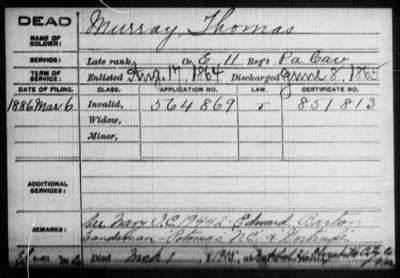 DEAD
NAME OF SOLDIER: Murray, Thomas
SERVICE: Late rank, Co. E 11 Reg't Pa Cav
TERM OF SERVICE: Enlisted Aug. 17, 1864 Discharged June 8, 1865
DATE OF FILING. CLASS. APPLICATION NO. LAW. CERTIFICATE NO.
1886 Mar 6 Invalid, 564 869 851 813
Widow,
Minor,
ADDITIONAL SERVICES:
REMARKS: See Navy I.C. 19448 - Edward Barton
Landsman - Potomac N.C. &
Died Mch 1, 1915, at